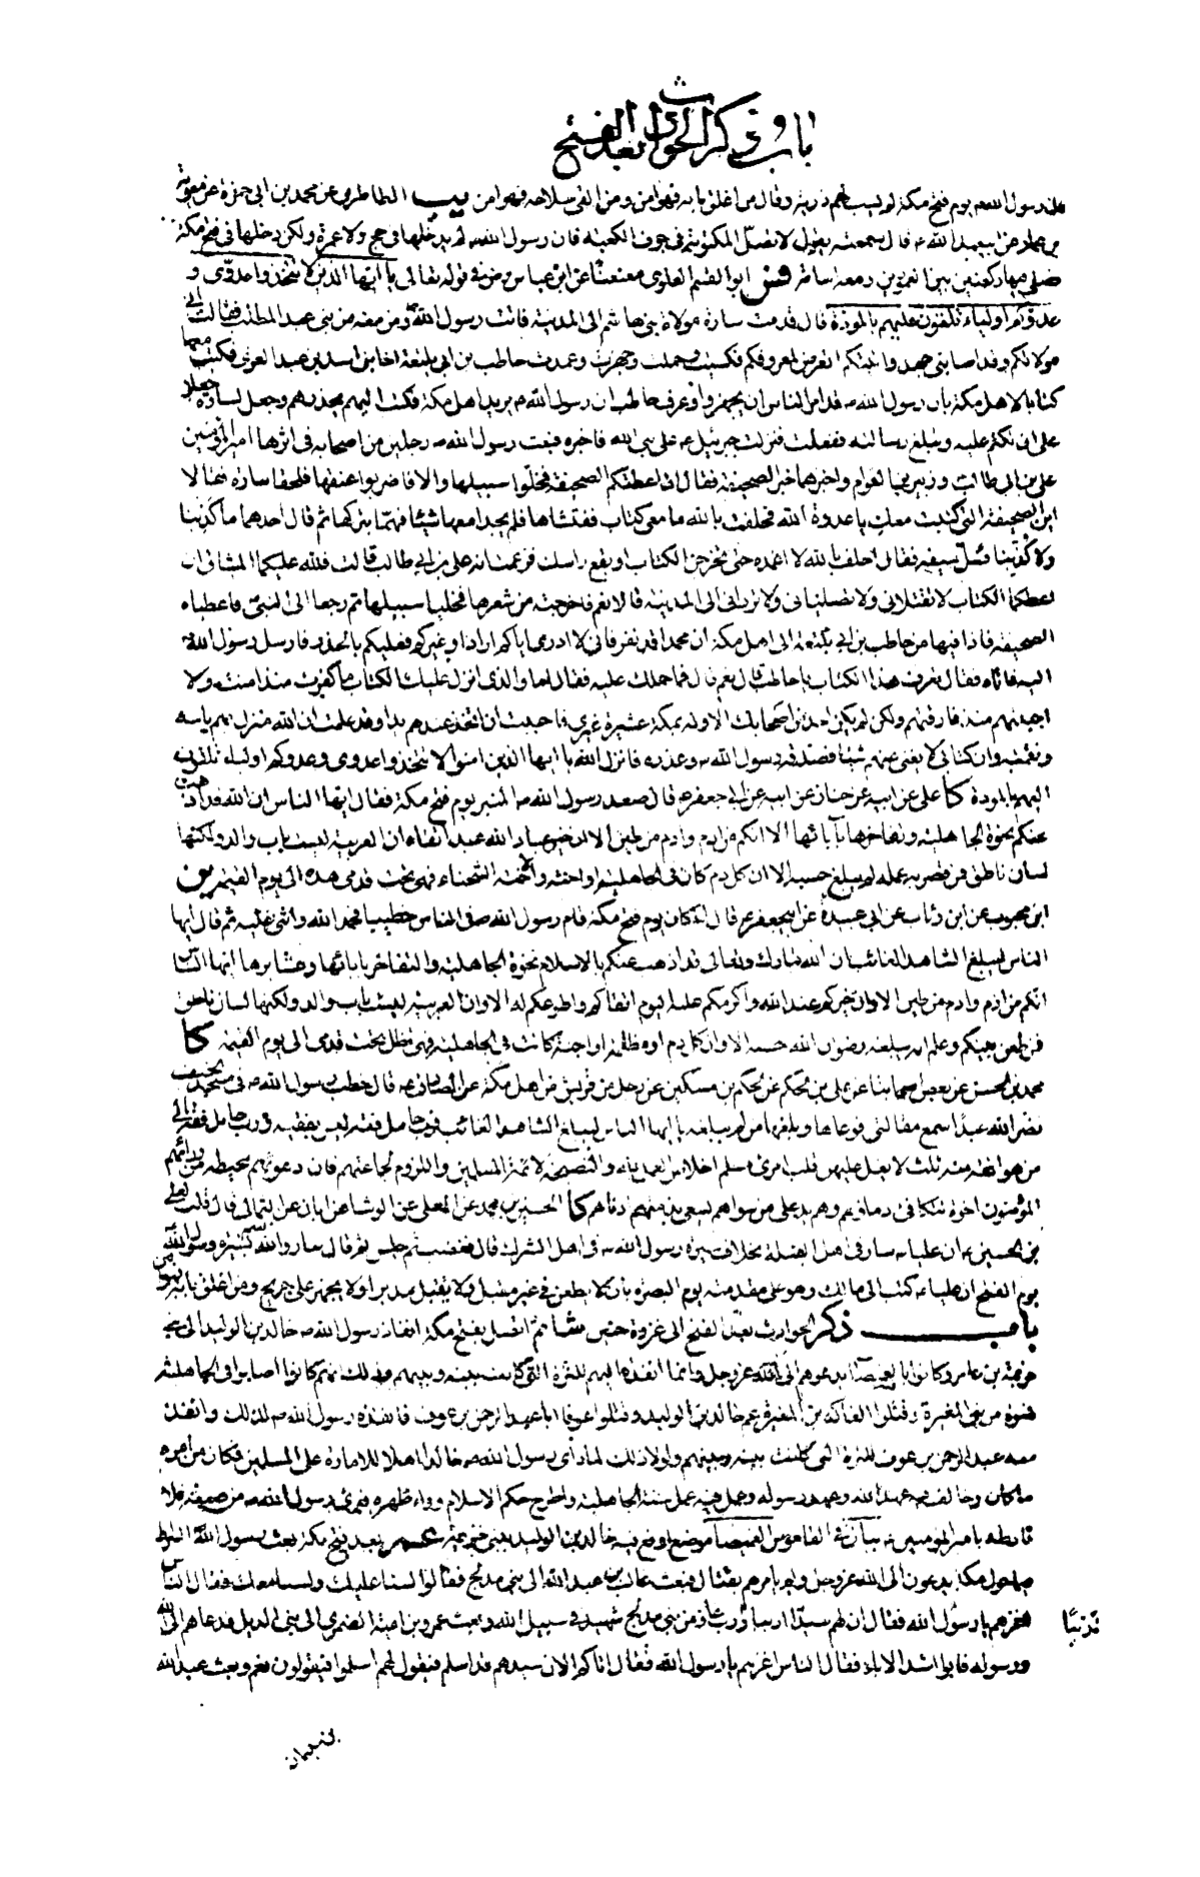 باب و ذكر الحوادث بعد الفتح
على رسول الله ص يوم فتح مكة لم يسب لهم ذرية وقال من اغلق بابه فهو امن ومن القى سلاحه فهو امن يب الطاطرى عن محمد بن ابى حمزة عن معوية
بن عمار عن ابيعبد الله ع قال سمعته يقول لا تصلّ المكتوبة فى جوف الكعبة فان رسول الله ص لم يدخلها فى حج ولا عمرة ولكن دخلها فى فتح مكة
فصلى فيها ركعتين بين العمودين ومعه اسامة فس ابو القسم العلوى معنعنا عن ابن عباس رض فى قوله تعالى يا ايها الذين لا تتخذوا عدوّى و
عدوكم اولياء تلقون عليهم بالمودة قال قدمت سارة مولاة بنى هاشم الى المدينة فاتت رسول الله ص ومن معه من بنى عبد المطلب فقالت انى
مولاتكم وقد اصابنى جهد واتيتكم اتعرض لمعروفكم فكسيت وحملت وجهزت وعمدت حاطب بن ابى بلتعة اخا بنى اسد بن عبد العزى فكتب معها
كتابا لاهل مكة بان رسول الله ص قد امر الناس ان يجهزوا وعرف حاطب ان رسول الله ص يريد اهل مكة فكتب اليهم يحذرهم وجعل لسارة جعلا
على ان تكتم عليه وتبلغ رسالته ففعلت فنزلت جبرئيل ع على نبى الله فاخبره فبعث رسول الله ص رجلين من اصحابه فى اثرها امير المؤمنين
على بن ابى طالب وزبير بن العوام واخبرهما خبر الصحيفة فقال ان اعطتكم الصحيفة فخلّوا سبيلها والا فاضربوا عنقها فلحقا سارة فقالا
اين الصحيفة التى كتبت معك يا عدوة الله فحلفت بالله ما معى كتاب ففتشاها فلم يجدا معها شيئا فهمّا بتركها ثم قال احدهما ما كذبنا
ولا كُذِّبنا فسلّ سيفه فقال احلف بالله لا اغمده حتى تخرجن الكتاب او يقع راسك فزعمت انه على بن ابى طالب قالت فلله عليكما الميثاق ان
اعطيكما الكتاب لا تقتلانى ولا تصلبانى ولا تردانى الى المدينة قالا نعم فاخرجته من شعرها فخليا سبيلها ثم رجعا الى النبىّ فاعطياه
الصحيفة فاذا فيها من حاطب بن ابى بلتعة الى اهل مكة ان محمدا قد نفر فانى لا ادرى اياكم اراد او غيركم فعليكم بالحذر فارسل رسول الله
اليه فاتاه فقال تعرف هذا الكتاب يا حاطب قال نعم قال فما حملك عليه فقال اما والذى انزل عليك الكتاب ما كفرت منذ امنت ولا
اجبتهم منذ فارقتهم ولكن لم يكن احد من اصحابك الا وله بمكة عشيرة غيرى فاحببت ان اتخذ عندهم يدا وقد علمت ان الله منزل بهم باسه
ونقمته وان كتابى لا يغنى عنهم شيئا فصدقه رسول الله ص وعذره فانزل الله يا ايها الذين امنوا لا تتخذوا عدوى وعدوكم اولياء تلقون
اليهم بالمودة كا على عن ابيه عن حنان عن ابيه عن ابى جعفر ع قال صعد رسول الله ص المنبر يوم فتح مكة فقال ايها الناس ان الله قد اذهب
عنكم نخوة الجاهلية وتفاخرها بآبائها الا انكم من ادم وادم من طين الا ان خير عباد الله عبد اتقاه ان العربية ليست باب والد ولكنها
لسان ناطق فمن قصر به عمله لم يبلغ حسبه الا ان كل دم كان فى الجاهلية او احنة والاحنة الشحناء فهى تحت قدمى هذه الى يوم القيمة ين
ابن محبوب عن ابن رئاب عن ابى عبيدة عن ابيجعفر ع قال لما كان يوم فتح مكة قام رسول الله ص فى الناس خطيبا فحمد الله واثنى عليه ثم قال ايها
الناس ليبلغ الشاهد الغائب ان الله تبارك وتعالى قد اذهب عنكم بالاسلام نخوة الجاهلية والتفاخر بابائها وعشايرها ايها الناس
انكم من ادم وادم من طين الا وان خيركم عند الله واكرمكم عليه اليوم اتقاكم واطوعكم له الا وان العربية ليست باب والد ولكنها لسان ناطق
فمن طعن بينكم وعلم انه يبلغه رضوان الله حسبه الا وان كل دم او مظلمة او احنة كانت فى الجاهلية فهى تظل تحت قدمى الى يوم القيمة كا
محمد بن الحسن عن بعض اصحابنا عن على بن الحكم عن الحكم بن مسكين عن رجل من قريش من اهل مكة عن الصادق ع قال خطب رسول الله ص فى مسجد الخيف
نضر الله عبدا سمع مقالتى فوعاها وبلغها من لم يبلغه يا ايها الناس ليبلغ الشاهد الغائب فرب حامل فقه ليس بفقيه ورب حامل فقه الى
من هو افقه منه ثلث لا يغل عليهن قلب امرئ مسلم اخلاص العمل لله والنصيحة لائمة المسلمين واللزوم لجماعتهم فان دعوتهم محيطة من ورائهم
المؤمنون اخوة تتكافى دماؤهم وهم يد على من سواهم يسعى بذمتهم ادناهم كا الحسين بن محمد عن المعلى عن الوشا عن ابان عن الثمالى قال قلت لعلى
بن الحسين ع ان عليا ع سار فى اهل القبلة بخلاف سيرة رسول الله ص فى اهل الشرك قال فغضب ثم جلس ثم قال سار والله فيهم بسيرة رسول الله
يوم الفتح ان عليا ع كتب الى مالك وهو على مقدمته يوم البصرة بان لا يطعن فى غير مقبل ولا يقتل مدبرا ولا يجهز على جريح ومن اغلق بابه فهو امن
باب ذكر الحوادث بعد الفتح الى غزوة حنين شا ثم اتصل بفتح مكة انفاذ رسول الله ص خالد بن الوليد الى بنى
جذيمة بن عامر وكانوا بالغميصاء يدعوهم الى الله عز وجل وانما انفذه اليهم للترة التى كانت بينه وبينهم وذلك انهم كانوا اصابوا فى الجاهلية
نسوة من بنى المغيرة وقتلوا الفاكه بن المغيرة عم خالد بن الوليد وقتلوا عوفا ابا عبد الرحمن بن عوف فانفذه رسول الله ص لذلك وانفذ
معه عبد الرحمن بن عوف للترة التى كانت بينه وبينهم ولولا ذلك لما رأى رسول الله ص خالدا اهلا للامارة على المسلمين فكان من امره
ما كان وخالف فيه عهد الله وعهد رسوله وعمل فيه عمل سنة الجاهلية واطرح حكم الاسلام وراء ظهره فبرئ رسول الله ص من صنيعه وتلا
فارطه بامير المؤمنين ع بيان فى القاموس الغميصاء موضع اوقع فيه خالد بن الوليد ببنى جذيمة عم بعد فتح مكة بعث رسول الله السرايا
فيما حول مكة يدعون الى الله عز وجل ولم يامرهم بقتال فبعث غالب بن عبد الله الى بنى مدلج فقالوا لسنا عليك ولسنا معك فقال الناس
اغزهم يا رسول الله فقال ان لهم سيدا اريبا ورب غاز من بنى مدلج شهيد فى سبيل الله وبعث عمرو بن امية الضمرى الى بنى الديل فدعاهم الى الله
ورسوله فابوا اشد الاباء فقال الناس اغزهم يا رسول الله فقال اتاكم الان سيدهم قد اسلم فيقول لهم اسلموا فيقولون نعم وبعث عبد الله